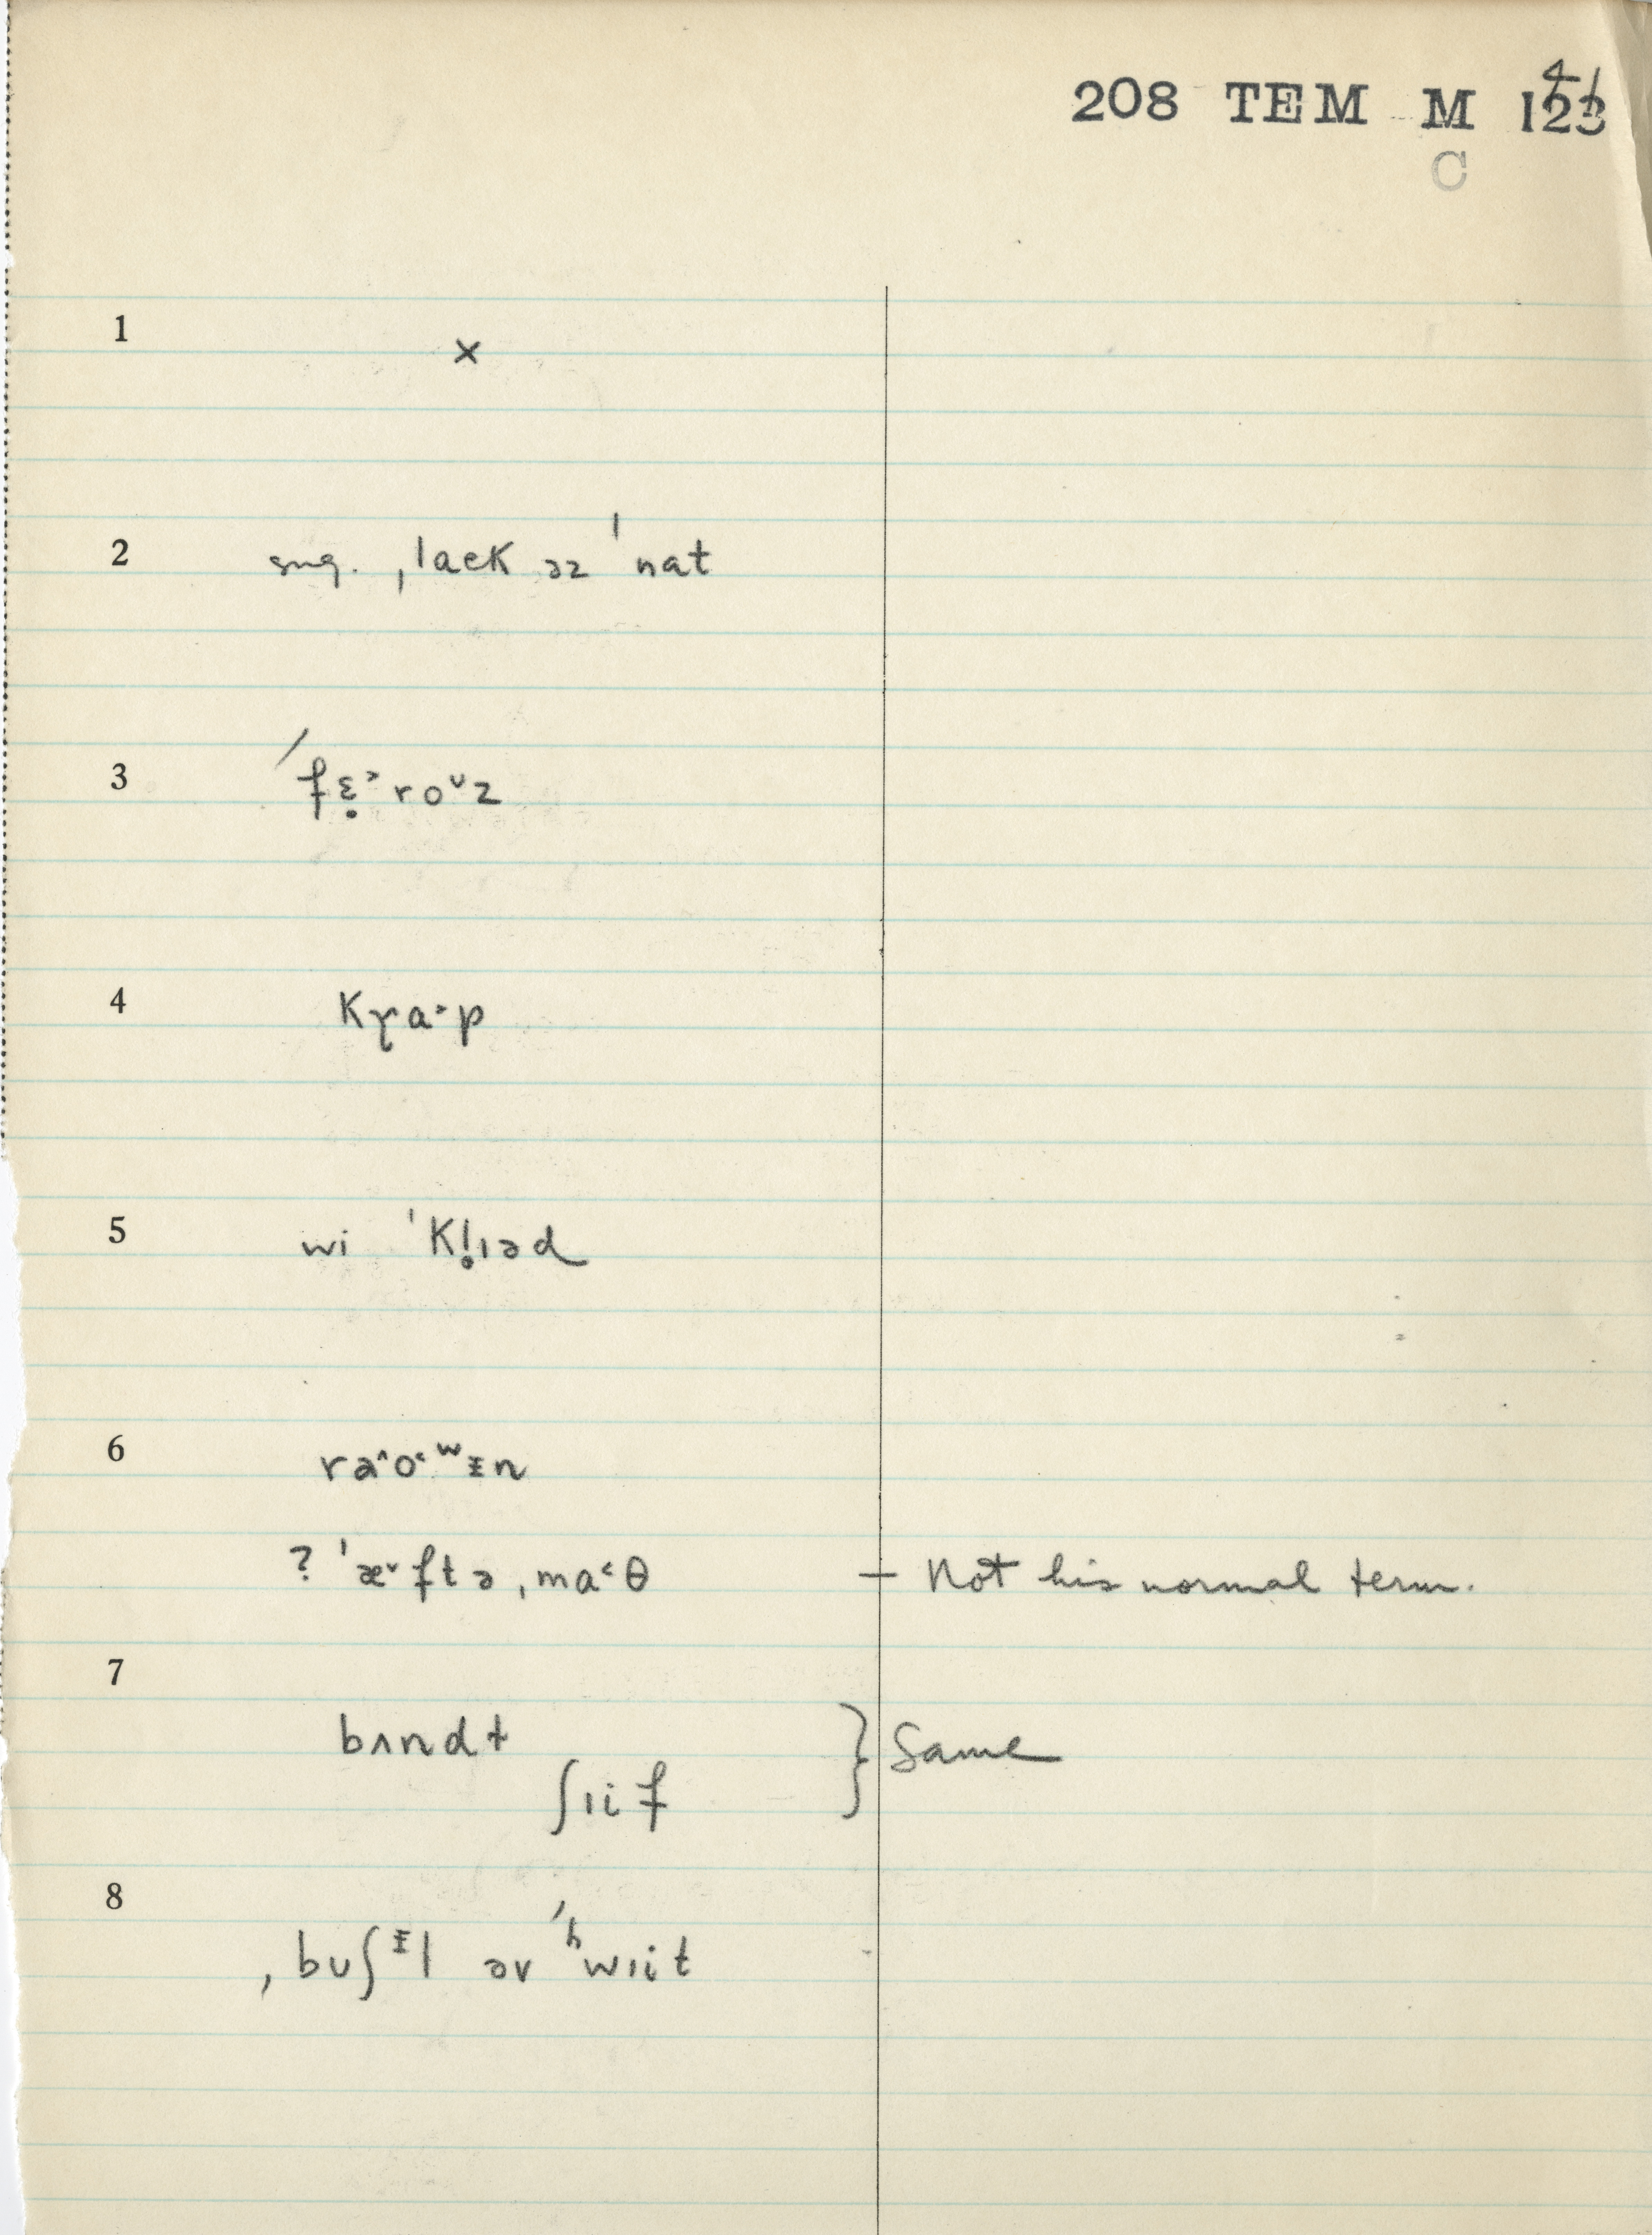 208 TEM M 123
4 1
C
1 ×
2 sug. ˌlaek əz ˈnat
3 ˊfɛ̣˃roᵛz
4 kɽa˃p
5 wi ˈkl̥ɪəd
6 rə^o˂ʷᵻn
? ˈæᵛftəˌma˂θ — Not his normal term.
7 bʌndɫ } Same
ʃɪif
8 ˌbuʃᵻl əv ˊʰwɪit